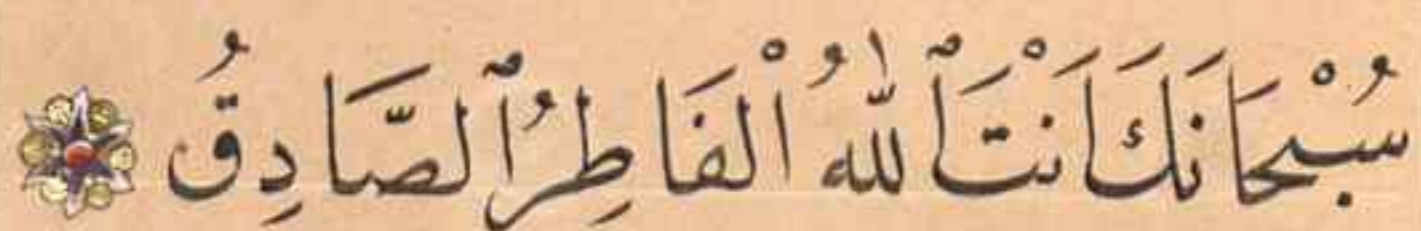 سُبْحَانَكَ اَنْتَ ٱللّٰهُ الْفَاطِرُ ٱلصَّادِقُ